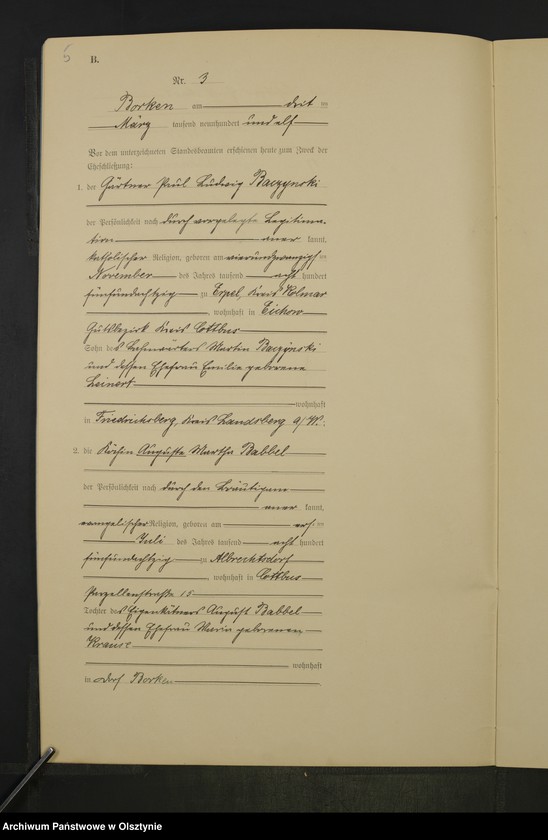 5
B.
Nr. 3
Borken am drit en
März tausend neunhundert und elf
Vor dem unterzeichneten Standesbeamten erschienen heute zum Zweck der
Eheschließung:
1. der Gärtner Paul Ludwig Baczynski
der Persönlichkeit nach durch vorgelegte Legitima-
tion aner kannt,
katholischer Religion, geboren am vierundzwanzigs en
November des Jahres tausend acht hundert
fünfundachtzig zu Erpel, Kreis Kolmar
, wohnhaft in Eichow
Gutsbezirk Kreis Cottbus
Sohn des Martin Baczynski
und dessen Ehefrau Emilie geborene
Leinert
wohnhaft
in Friedrichsberg, Kreis Landsberg a/W.;
2. die Köchin Auguste Martha Babbel
der Persönlichkeit nach durch den Bräutigam
aner kannt,
evangelischer Religion, geboren am ers en
Juli des Jahres tausend acht hundert
fünfundachtzig zu Albrechtsdorf
, wohnhaft in Cottbus
Parzellenstraße 15
Tochter des Eigenkätners August Babbel
und dessen Ehefrau Maria geborenen
Krause
wohnhaft
in Dorf Borken
Archiwum Państwowe w Olsztynie